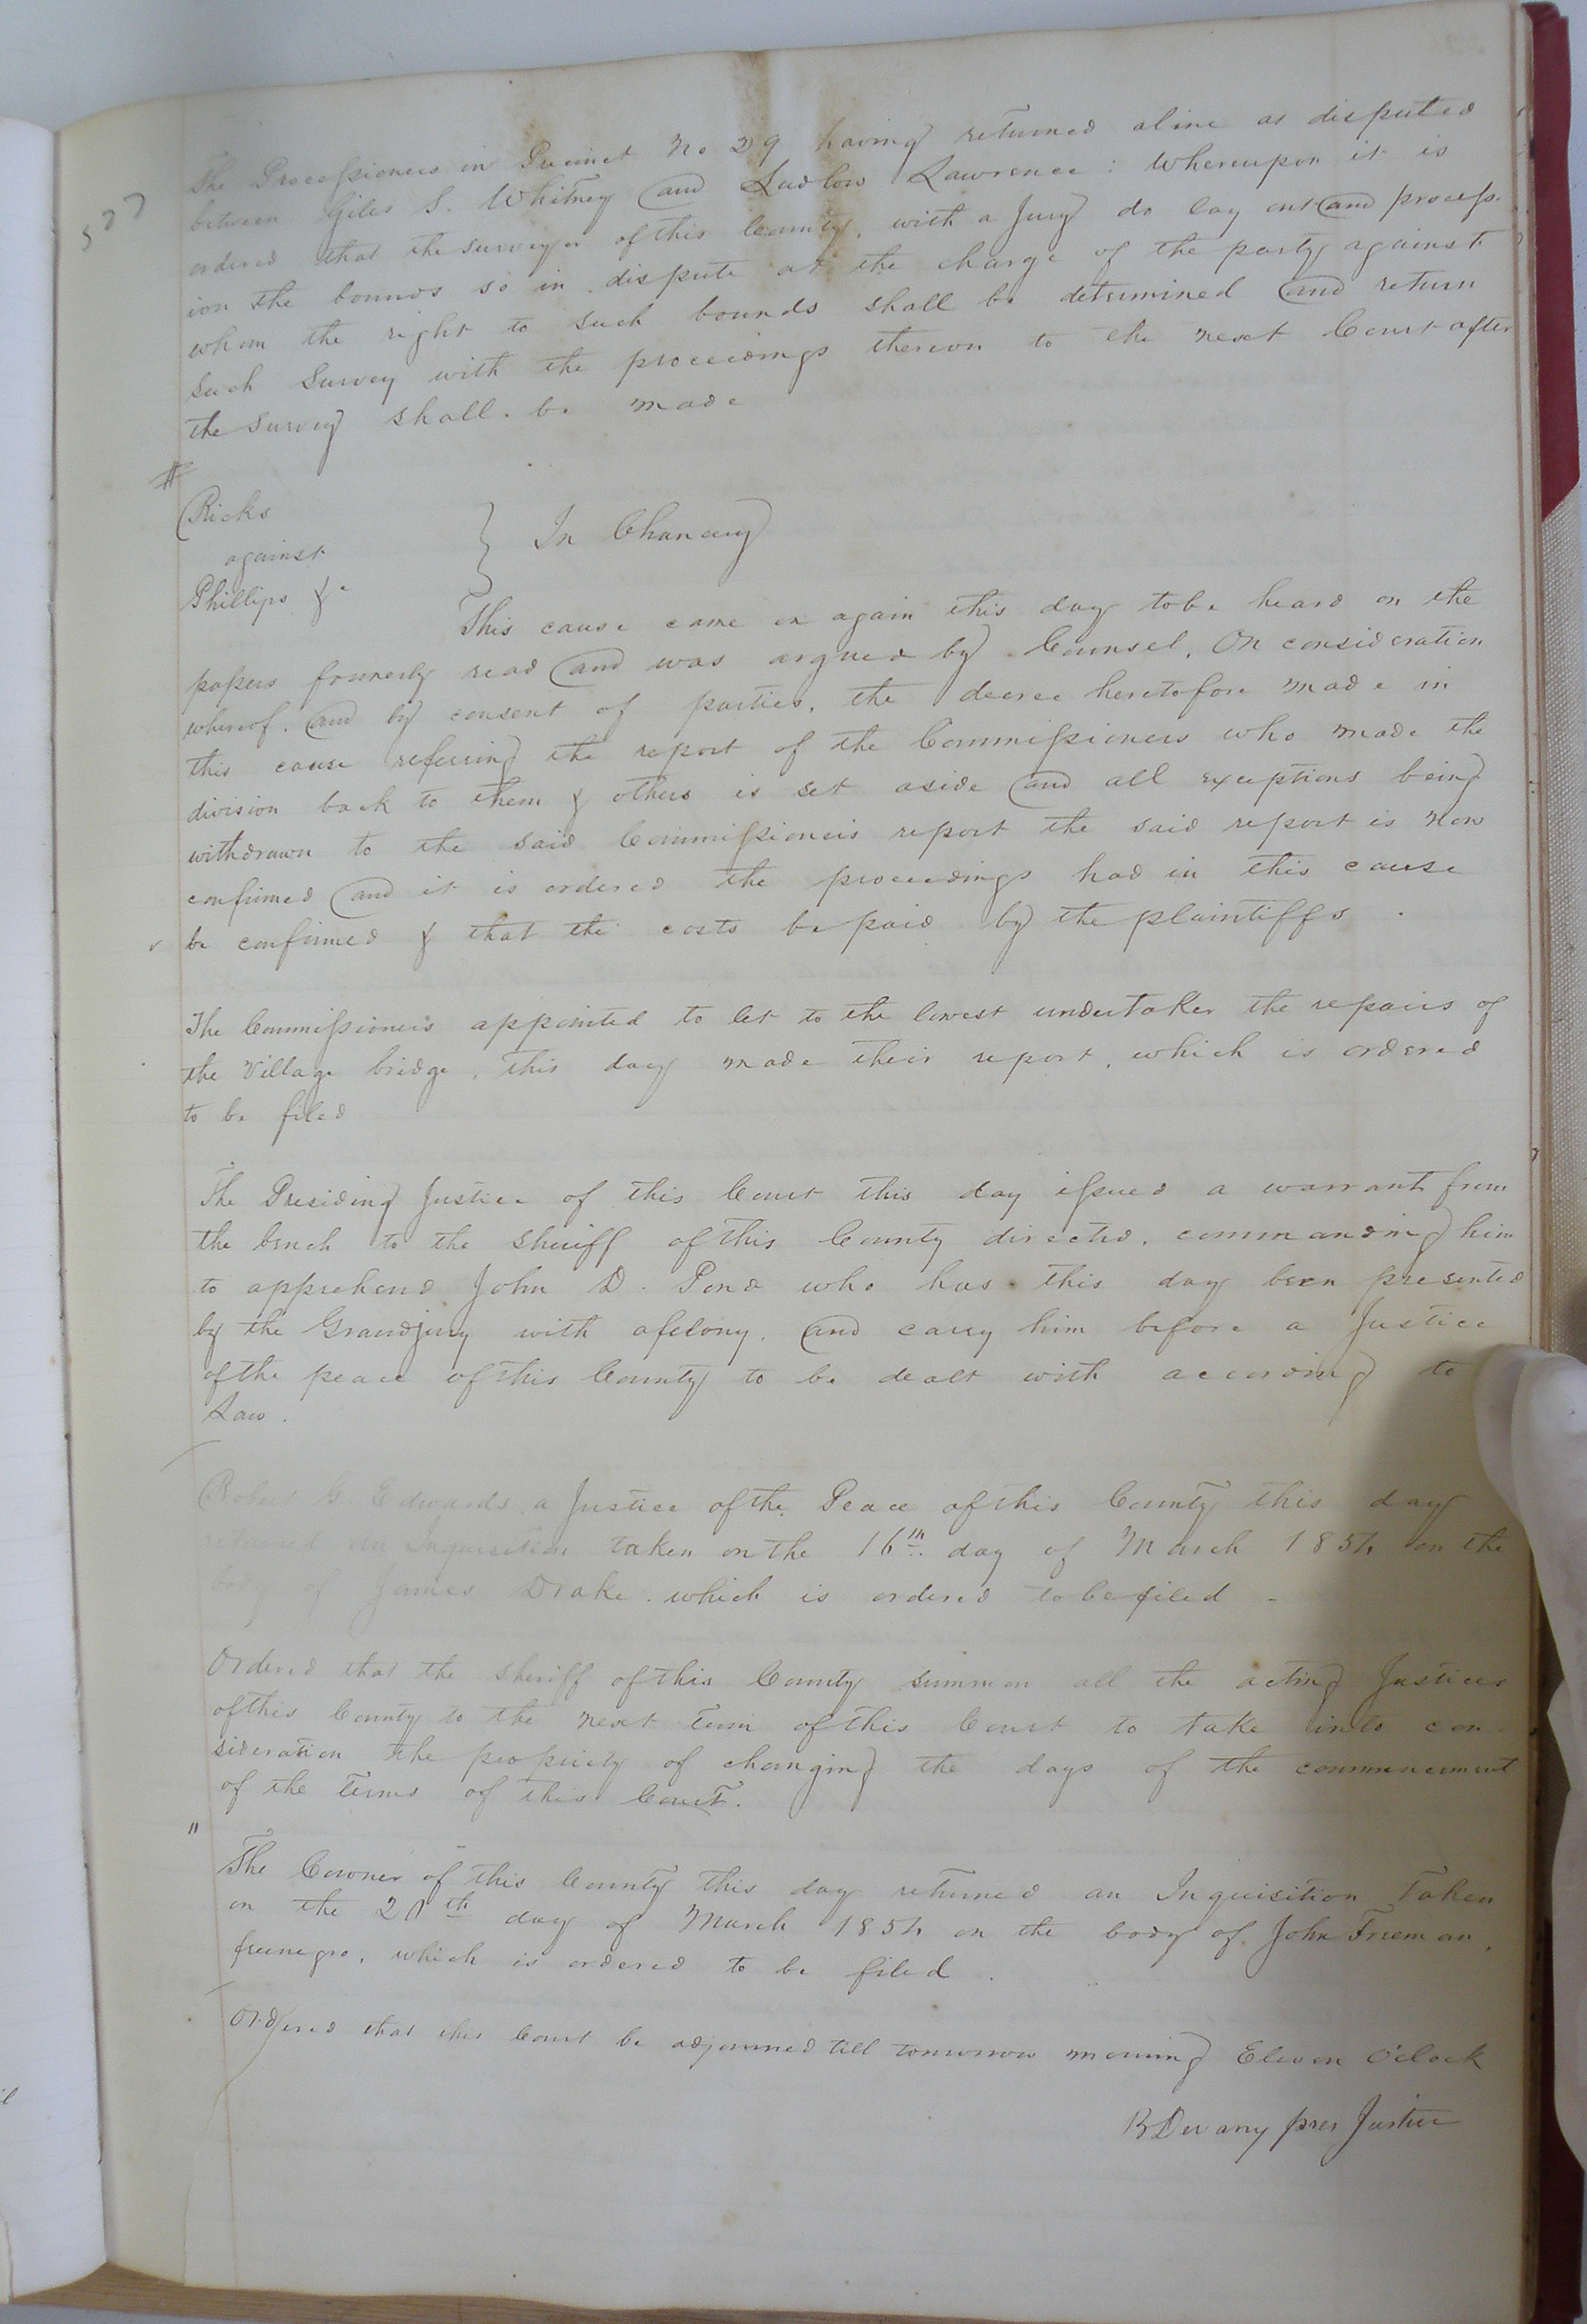 577
The Processioners in Precinct No 29 having returned aline as disputed
between Giles S. Whitney and Ludlow Lawrence : Whereupon it is
ordered that the surveyor of this County, with a Jury do lay out and process-
ion the bounds so in dispute at the charge of the party against
whom the right to such bounds shall be determined and return
such Survey with the proceedings thereon to the next Court after
the Survey shall be made
Ricks
against } In Chancery
Phillips &c
This cause came on again this day tobe heard on the
papers formerly read and was argued by Counsel, On consideration
whereof, and by consent of parties, the decree heretofore made in
this cause refering the report of the Commissioners who made the
division back to them & others is set aside and all exceptions being
withdrawn to the said Commissioners report the said report is now
confirmed and it is ordered the proceedings had in this cause
be confirmed & that the costs be paid by the plaintiffs .
The Commissioners appointed to let to the lowest undertaker the repairs of
the Village bridge, this day made their report, which is ordered
to be filed
The Presiding Justice of this Court this day issued a warrant from
the bench to the Sheriff of this County directed, commanding him
to apprehend John D. Pond who has this day been presented
by the Grandjury with afelony, and carry him before a Justice
of the peace of this County to be dealt with according to
Law .
Robert G. Edwards a Justice of the Peace of this County this day
returned an Inquisition taken on the 16th day of March 1854 on the
body of James Drake which is ordered to be filed -
Ordered that the Sheriff of this County summon all the acting Justices
of this County to the next Term of this Court to take into con-
sideration the propriety of changing the days of the commencement
of the Terms of this Court.
" The Coroner of this County this day returned an Inquisition Taken
on the 20th day of March 1854 on the body of John Freeman,
freenegro, which is ordered to be filed .
Ordered that this Court be adjourned till tomorrow morning Eleven O'clock
B Devany pres Justice